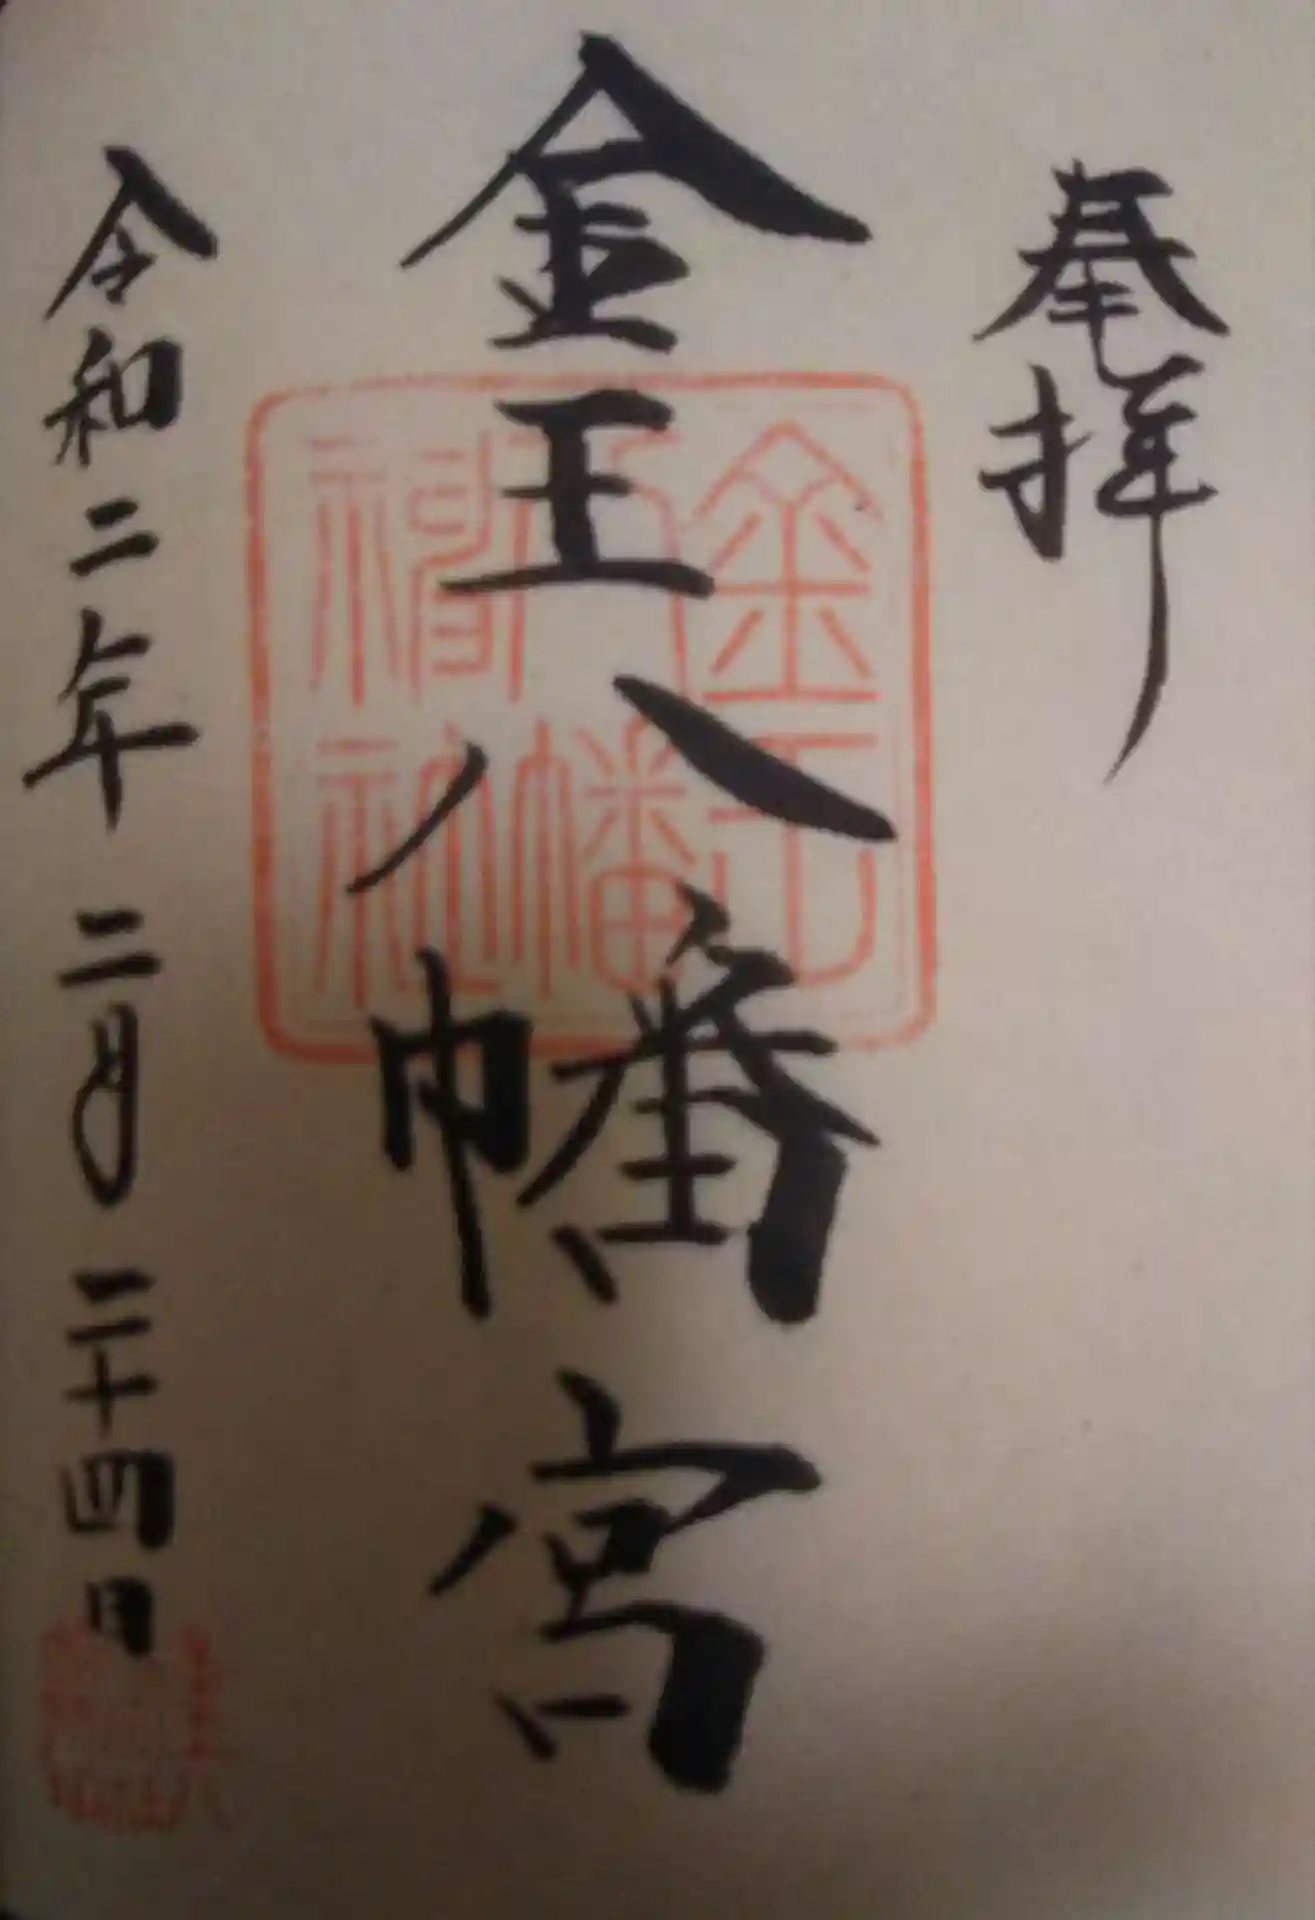 奉拝
金王八幡宮
金王八幡神社
令和二年二月二十四日